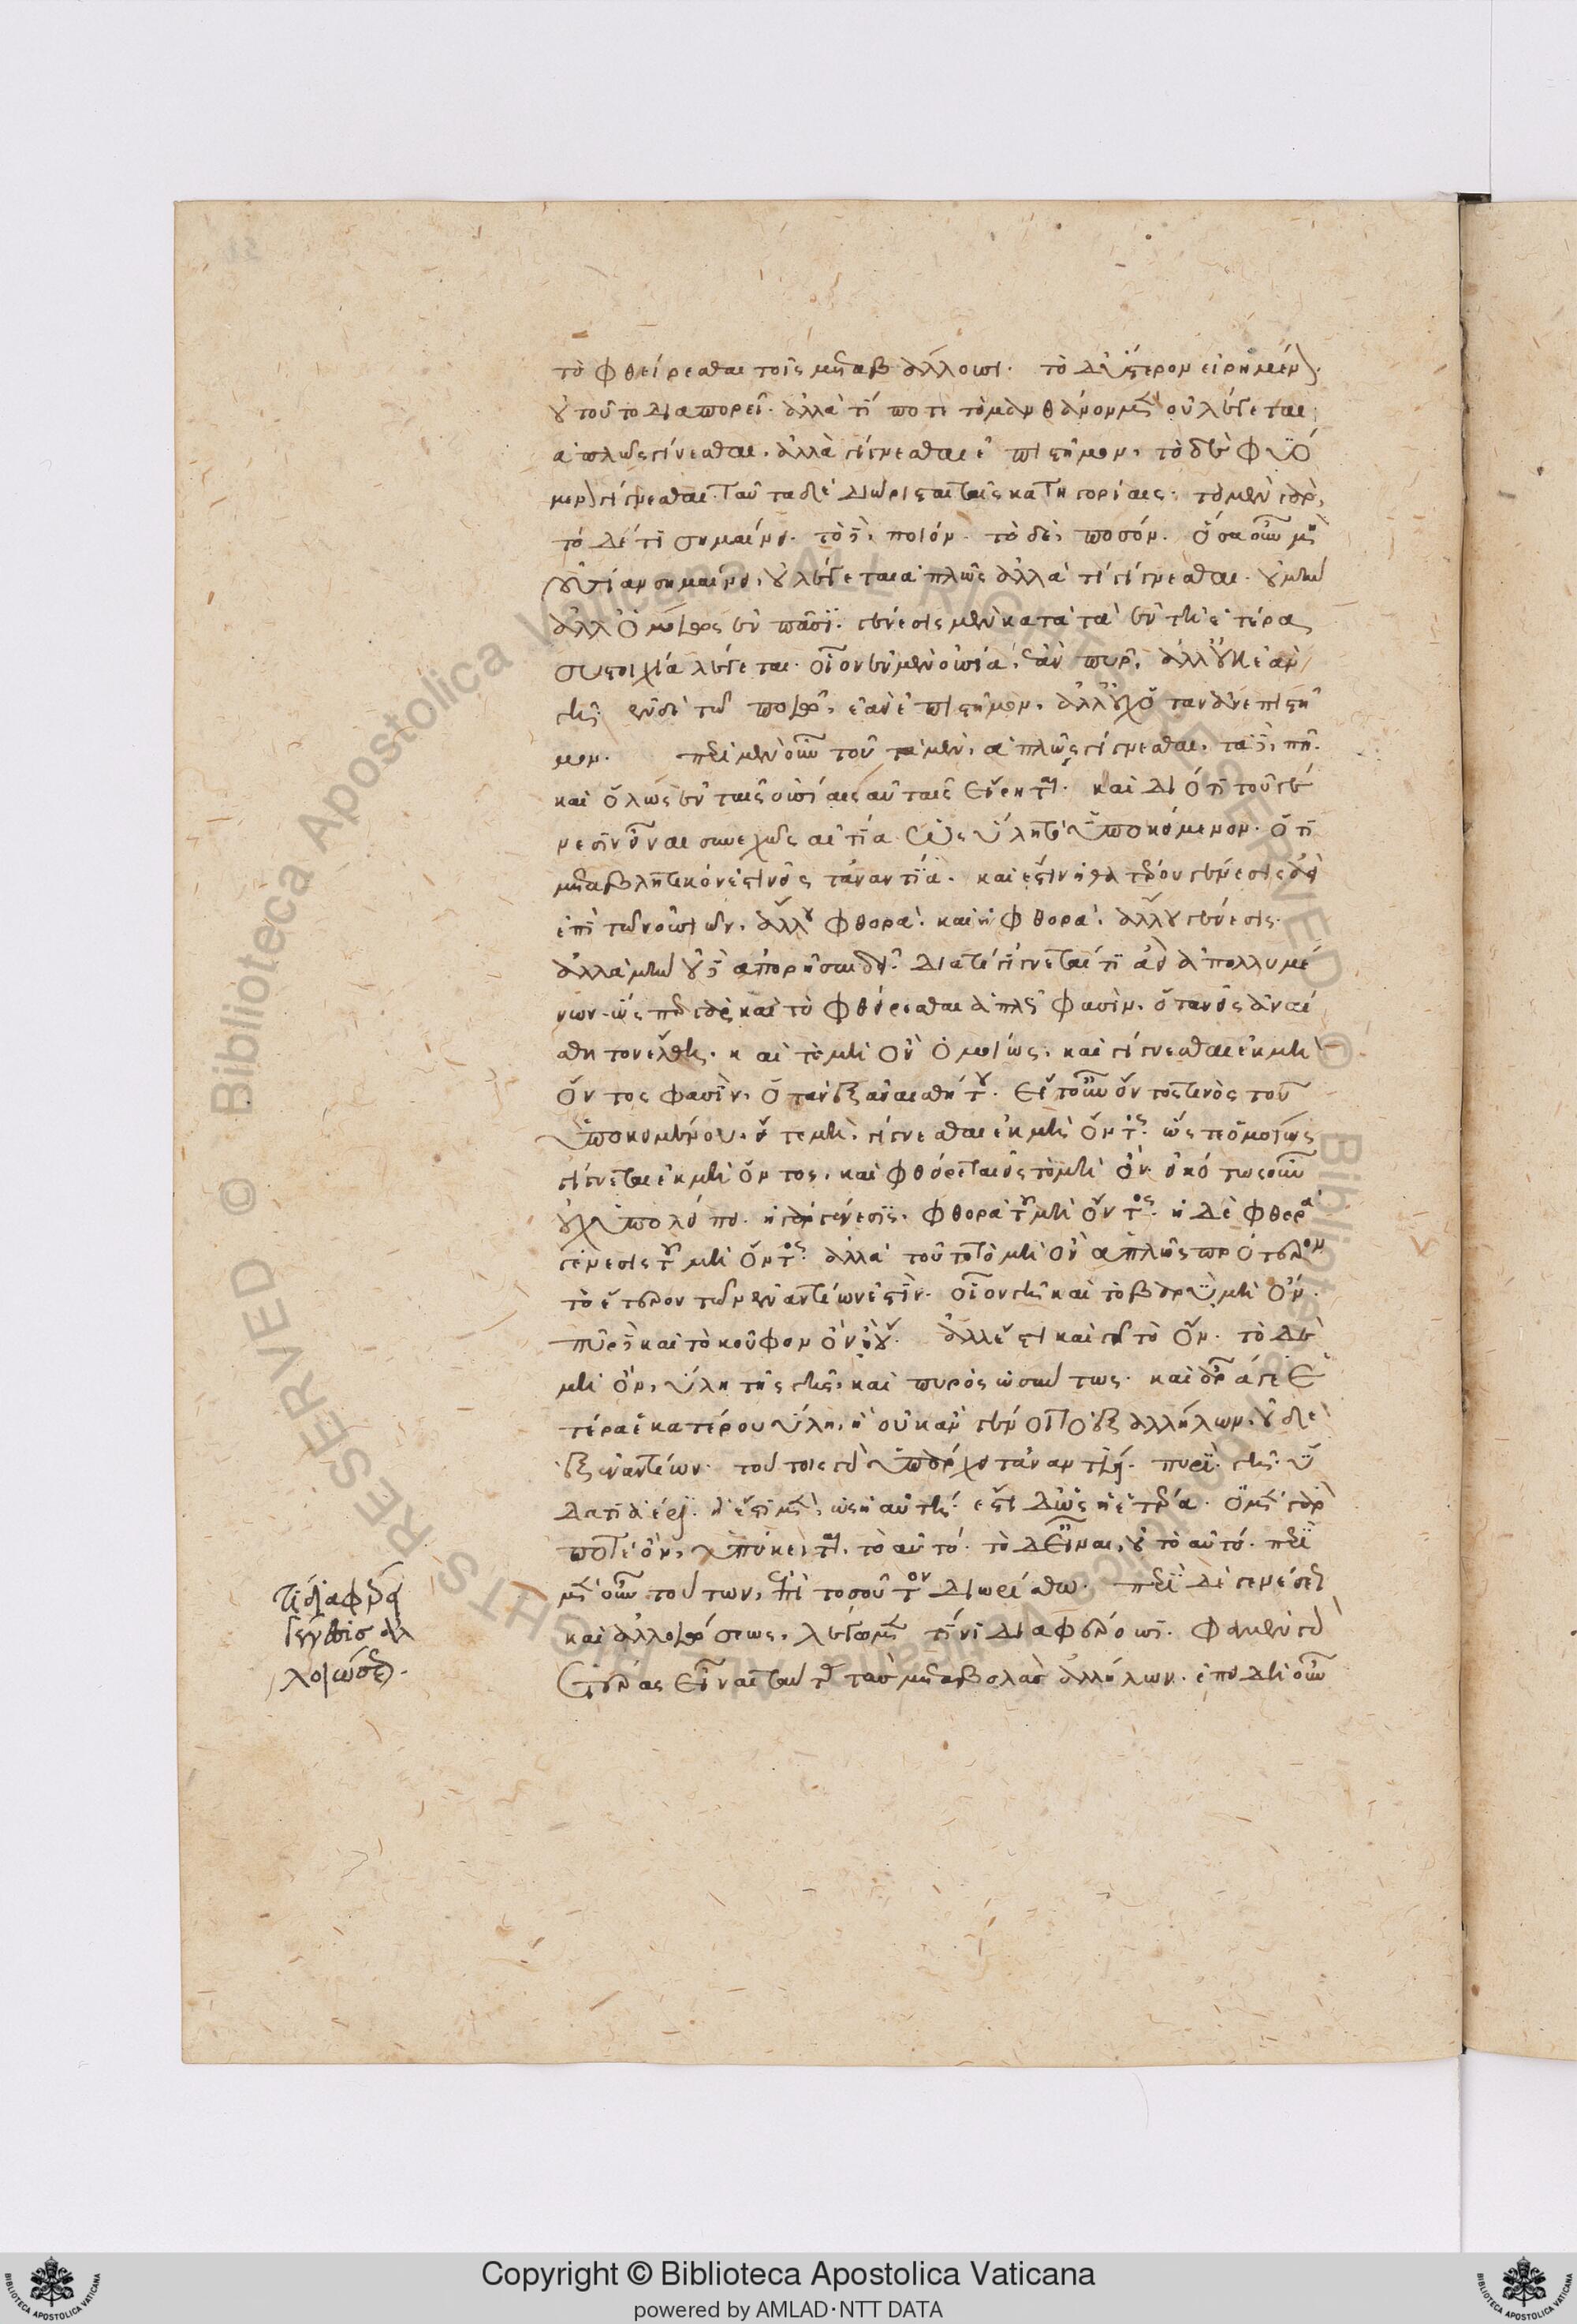 τὸ φθείρεσθαι τοῖς μεταβάλλουσι. τὸ δ' ὕστερον εἰρημένον.
οὐ τοῦτο διαπορεῖ. ἀλλὰ τί ποτε τὸ μανθάνον μὲν οὐ λέγεται
ἁπλῶς γίνεσθαι. ἀλλὰ γίγνεσθαι ἐπιστῆμον. τὸ δὲ φυό
μενον γίγνεσθαι. ταῦτα δὲ διώρισται ταῖς κατηγορίαις. τὸ μὲν γὰρ,
τόδε τι σημαίνει. τὸ δὲ, ποιόν. τὸ δὲ, ποσόν. ὅσα οὖν μὴ
οὐσίαν σημαίνει, οὐ λέγεται ἁπλῶς ἀλλά τι γίγνεσθαι. οὐ μὴν
ἀλλ' ὁμοίως ἐν πᾶσι. γένεσις μὲν κατὰ τὰ ἐν τῇ ἑτέρᾳ
συστοιχίᾳ λέγεται. οἷον ἐν μὲν οὐσίᾳ, ἐὰν πῦρ, ἀλλ' οὐκ ἐὰν
γῆ. ἐν δὲ τῷ ποιῷ, ἐὰν ἐπιστῆμον. ἀλλ' οὐχ ὅταν ἀνεπιστῆ
μον. περὶ μὲν οὖν τοῦ τὰ μὲν, ἁπλῶς γίγνεσθαι. τὰ δὲ, μή.
καὶ ὅλως ἐν ταῖς οὐσίαις αὐταῖς εἴρηται. καὶ διότι τοῦ γέ
νεσιν εἶναι συνεχῶς αἰτία ὡς ὕλη τὸ ὑποκείμενον. ὅτι
μεταβλητικόν ἐστιν εἰς τἀναντία. καὶ ἔστιν ἡ θατέρου γένεσις ἀεὶ
ἐπὶ τῶν οὐσιῶν, ἄλλου φθορά. καὶ ἡ φθορά, ἄλλου γένεσις.
ἀλλὰ μὴν οὐδὲ ἀπορῆσαι δεῖ. διὰ τί γίγνεταί τι ἀεὶ ἀπολλυμέ
νων. ὥσπερ γὰρ καὶ τὸ φθείρεσθαι ἁπλῶς φασίν, ὅταν εἰς ἀναί
σθητον ἔλθῃ. καὶ τὸ μὴ ὂν ὁμοίως. καὶ γίγνεσθαι ἐκ μὴ
ὄντος φασίν, ὅταν ἐξ ἀναισθήτου. εἴτ' οὖν ὄντος τινὸς τοῦ
ὑποκειμένου. εἴτε μὴ. γίγνεσθαι ἐκ μὴ ὄντος. ὥστε ὁμοίως
γίγνεται ἐκ μὴ ὄντος, καὶ φθείρεται εἰς τὸ μὴ ὄν. εἰκότως οὖν
οὐχ ὑπολείπει. ἡ γὰρ γένεσις. φθορὰ τοῦ μὴ ὄντος. ἡ δὲ φθορὰ
γένεσις τοῦ μὴ ὄντος. ἀλλὰ τοῦτο τὸ μὴ ὂν ἁπλῶς πρότερον
τὸ ἕτερον τῶν ἐναντίων ἐστίν. οἷον γῆ καὶ τὸ βαρὺ μὴ ὄν.
πῦρ δὲ καὶ τὸ κοῦφον ὂν ἢ οὔ. ἀλλ' ἔστι καὶ γῆ τὸ ὄν. τὸ δὲ
μὴ ὄν, ὕλη τῆς γῆς, καὶ πυρὸς ὡσαύτως. καὶ ἆρά γε ἑ
τέρα ἑκατέρου ὕλη, ἢ οὐκ ἂν γένοιτο ἐξ ἀλλήλων, οὐδὲ
ἐξ ἐναντίων. τούτοις γὰρ ὑπάρχει τἀναντία. πυρί. γῇ. ὕ
δατι ἀέρι. ἢ ἔστι μὲν, ὡς ἡ αὐτή. ἔστι δ' ὡς ἡ ἑτέρα. ὃ μὲν γάρ
ποτε ὄν, ὑπόκειται, τὸ αὐτό. τὸ δ' εἶναι, οὐ τὸ αὐτό. περὶ
μὲν οὖν τούτων, ἐπὶ τοσοῦτον διωρίσθω. περὶ δὲ γενέσεως
καὶ ἀλλοιώσεως, λέγωμεν τίνι διαφέρουσι. φαμὲν γὰρ
ἑτέρας εἶναι ταύτας τὰς μεταβολὰς ἀλλήλων. ἐπειδὴ οὖν
τί διαφέρει
γένεσις ἀλ
λοιώσεως.